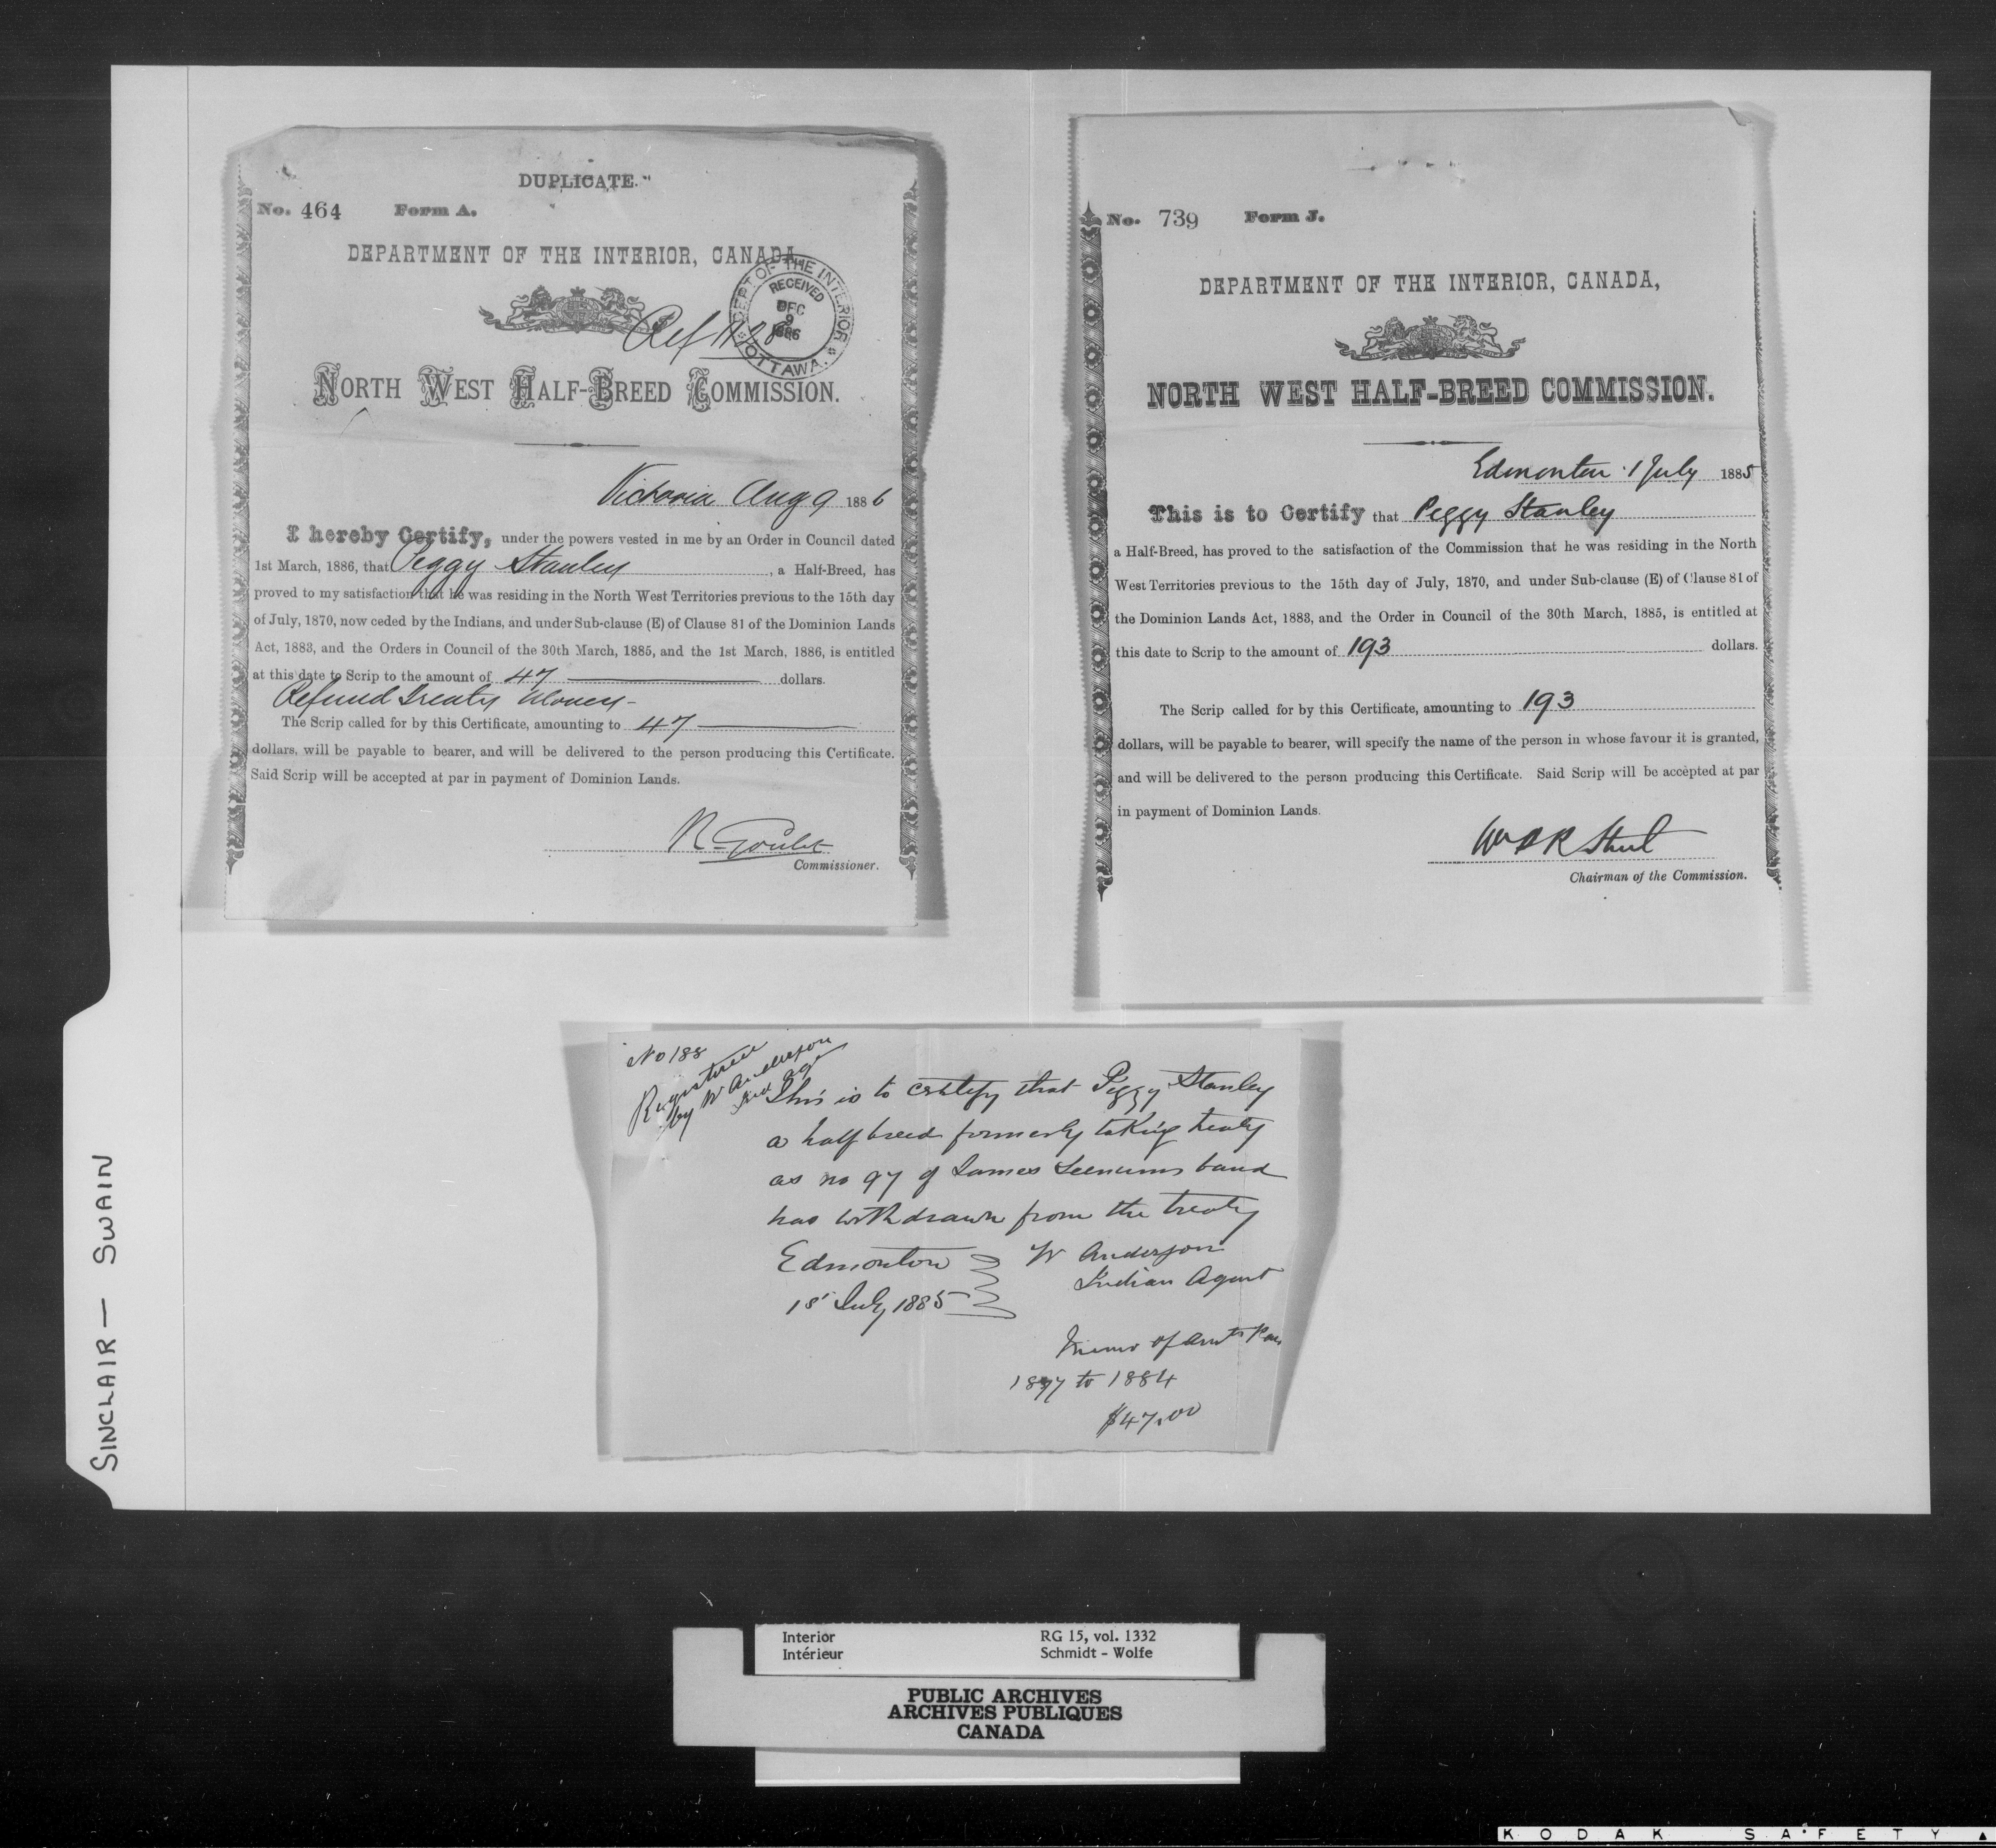 DUPLICATE.
No. 464 Form A.
DEPARTMENT OF THE INTERIOR, CANADA,
DEPT OF THE INTERIOR
RECEIVED
DEC
9
1886
OTTAWA.
Ref
NORTH WEST HALF-BREED COMMISSION.
Victoria Aug 9 1886
I hereby Certify, under the powers vested in me by an Order in Council dated
1st March, 1886, that Peggy Stanley, a Half-Breed, has
proved to my satisfaction that he was residing in the North West Territories previous to the 15th day
of July, 1870, now ceded by the Indians, and under Sub-clause (E) of Clause 81 of the Dominion Lands
Act, 1883, and the Orders in Council of the 30th March, 1885, and the 1st March, 1886, is entitled
at this date to Scrip to the amount of 47 dollars.
Refund Treaty Money -
The Scrip called for by this Certificate, amounting to 47
dollars, will be payable to bearer, and will be delivered to the person producing this Certificate.
Said Scrip will be accepted at par in payment of Dominion Lands.
R Goulet
Commissioner.
No. 739 Form J.
DEPARTMENT OF THE INTERIOR, CANADA,
NORTH WEST HALF-BREED COMMISSION.
Edmonton 1 July 1885
This is to Certify that Peggy Stanley
a Half-Breed, has proved to the satisfaction of the Commission that he was residing in the North
West Territories previous to the 15th day of July, 1870, and under Sub-clause (E) of Clause 81 of
the Dominion Lands Act, 1883, and the Order in Council of the 30th March, 1885, is entitled at
this date to Scrip to the amount of 193 dollars.
The Scrip called for by this Certificate, amounting to 193
dollars, will be payable to bearer, will specify the name of the person in whose favour it is granted,
and will be delivered to the person producing this Certificate. Said Scrip will be accepted at par
in payment of Dominion Lands.
Wm P R Street
Chairman of the Commission.
No 188
Registered
by W Anderson
Ind Ag
This is to certify that Peggy Stanley
a half breed formerly taking treaty
as no 97 of James Seenums band
has withdrawn from the treaty
Edmonton
1st July 1885
W Anderson
Indian Agent
Memo of Amts
1877 to 1884
$47.00
SINCLAIR — SWAIN
Interior RG 15, vol. 1332
Intérieur Schmidt - Wolfe
PUBLIC ARCHIVES
ARCHIVES PUBLIQUES
CANADA
KODAK SAFETY